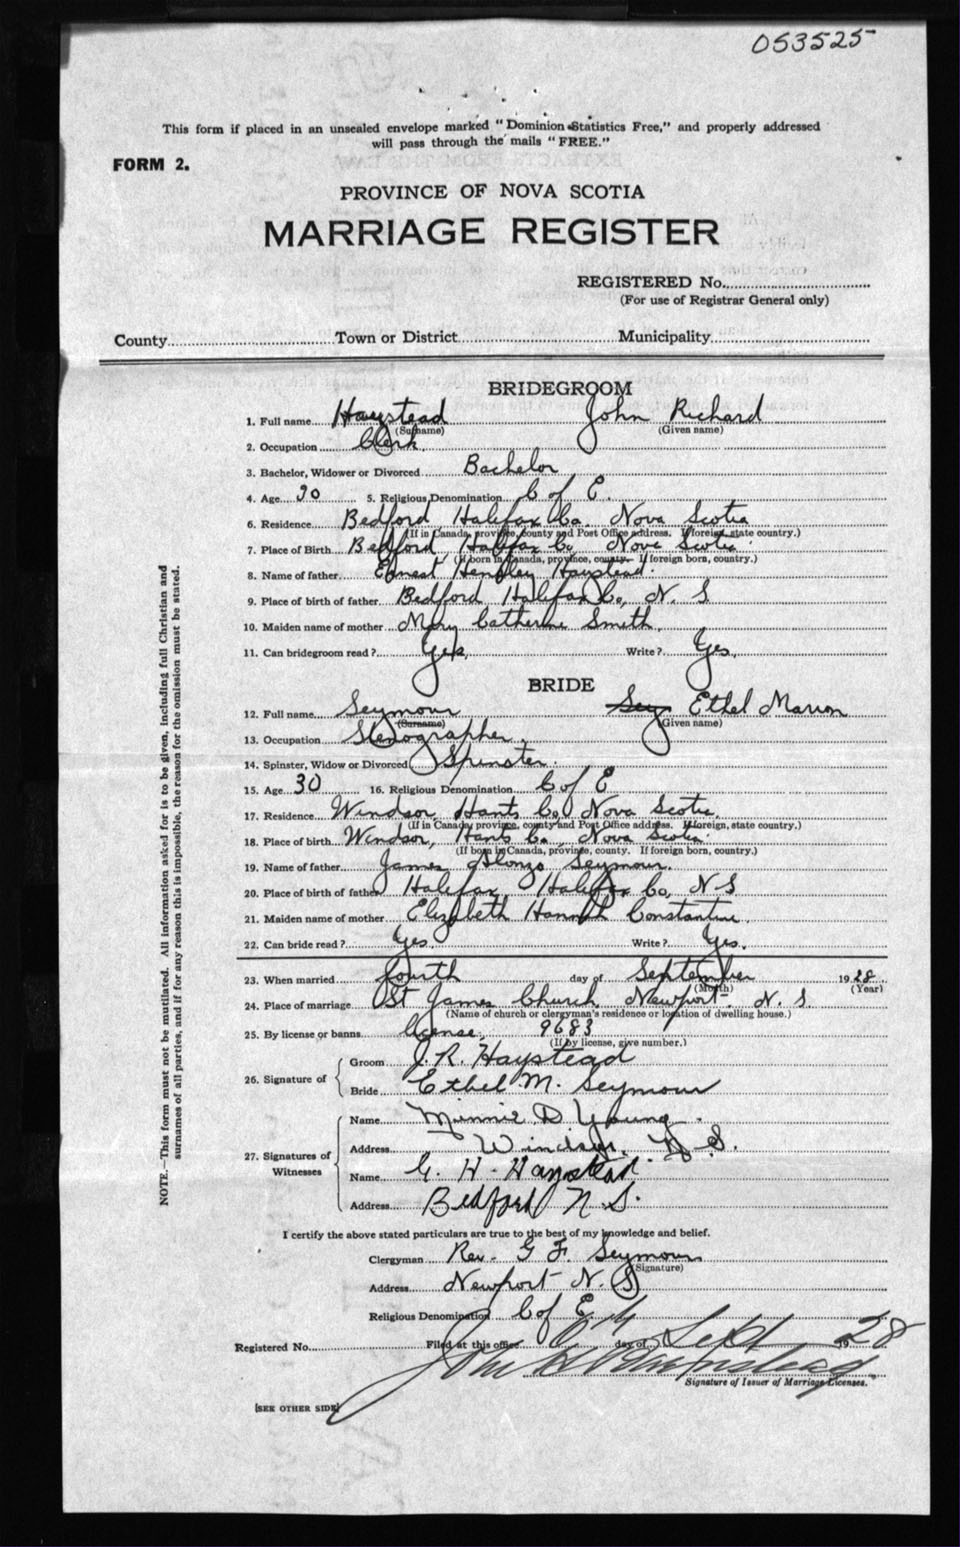 053525
This form if placed in an unsealed envelope marked "Dominion Statistics Free," and properly addressed
will pass through the mails "FREE."
FORM 2.
PROVINCE OF NOVA SCOTIA
MARRIAGE REGISTER
REGISTERED No.
(For use of Registrar General only)
County Town or District Municipality
BRIDEGROOM
1. Full name Haystead John Richard
(Surname) (Given name)
2. Occupation Clerk
3. Bachelor, Widower or Divorced Bachelor
4. Age 30 5. Religious Denomination C of E.
6. Residence Bedford Halifax Co. Nova Scotia
(If in Canada, province, county and Post Office address. If foreign, state country.)
7. Place of Birth Bedford Halifax Co, Nova Scotia
(If born in Canada, province, county. If foreign born, country.)
8. Name of father Ernest Henpley Haystead.
9. Place of birth of father Bedford Halifax Co, N. S
10. Maiden name of mother Mary Catherine Smith
11. Can bridegroom read? Yes, Write? Yes,
BRIDE
12. Full name Seymour Sey Ethel Marion
(Surname) (Given name)
13. Occupation Stenographer
14. Spinster, Widow or Divorced Spinster.
15. Age 30 16. Religious Denomination C of E
17. Residence Windsor, Hants Co, Nova Scotia,
(If in Canada, province, county and Post Office address. If foreign, state country.)
18. Place of birth Windsor, Hants Co., Nova Scotia.
(If born in Canada, province, county. If foreign born, country.)
19. Name of father James Alonzo Seymour.
20. Place of birth of father Halifax, Halifax Co, N-S
21. Maiden name of mother Elizabeth Hannah Constantine
22. Can bride read? Yes. Write? Yes.
23. When married fourth day of September 1928
(Month) (Year)
24. Place of marriage St James Church Newport N. S.
(Name of church or clergyman's residence or location of dwelling house.)
25. By license or banns license, 9683
(If by license, give number.)
26. Signature of Groom J. R. Haystead
Bride Ethel M. Seymour
27. Signatures of Witnesses
Name Minnie D Young
Address Windsor, N. S.
Name G. H. Haystead.
Address Bedford N. S.
I certify the above stated particulars are true to the best of my knowledge and belief.
Clergyman Rev. G F. Seymour
(Signature)
Address Newport N. S
Religious Denomination C of E
Registered No. Filed at this office day of Sept 1928
Signature of Issuer of Marriage Licenses.
[SEE OTHER SIDE]
NOTE.—This form must not be mutilated. All information asked for is to be given, including full Christian and
surnames of all parties, and if for any reason this is impossible, the reason for the omission must be stated.